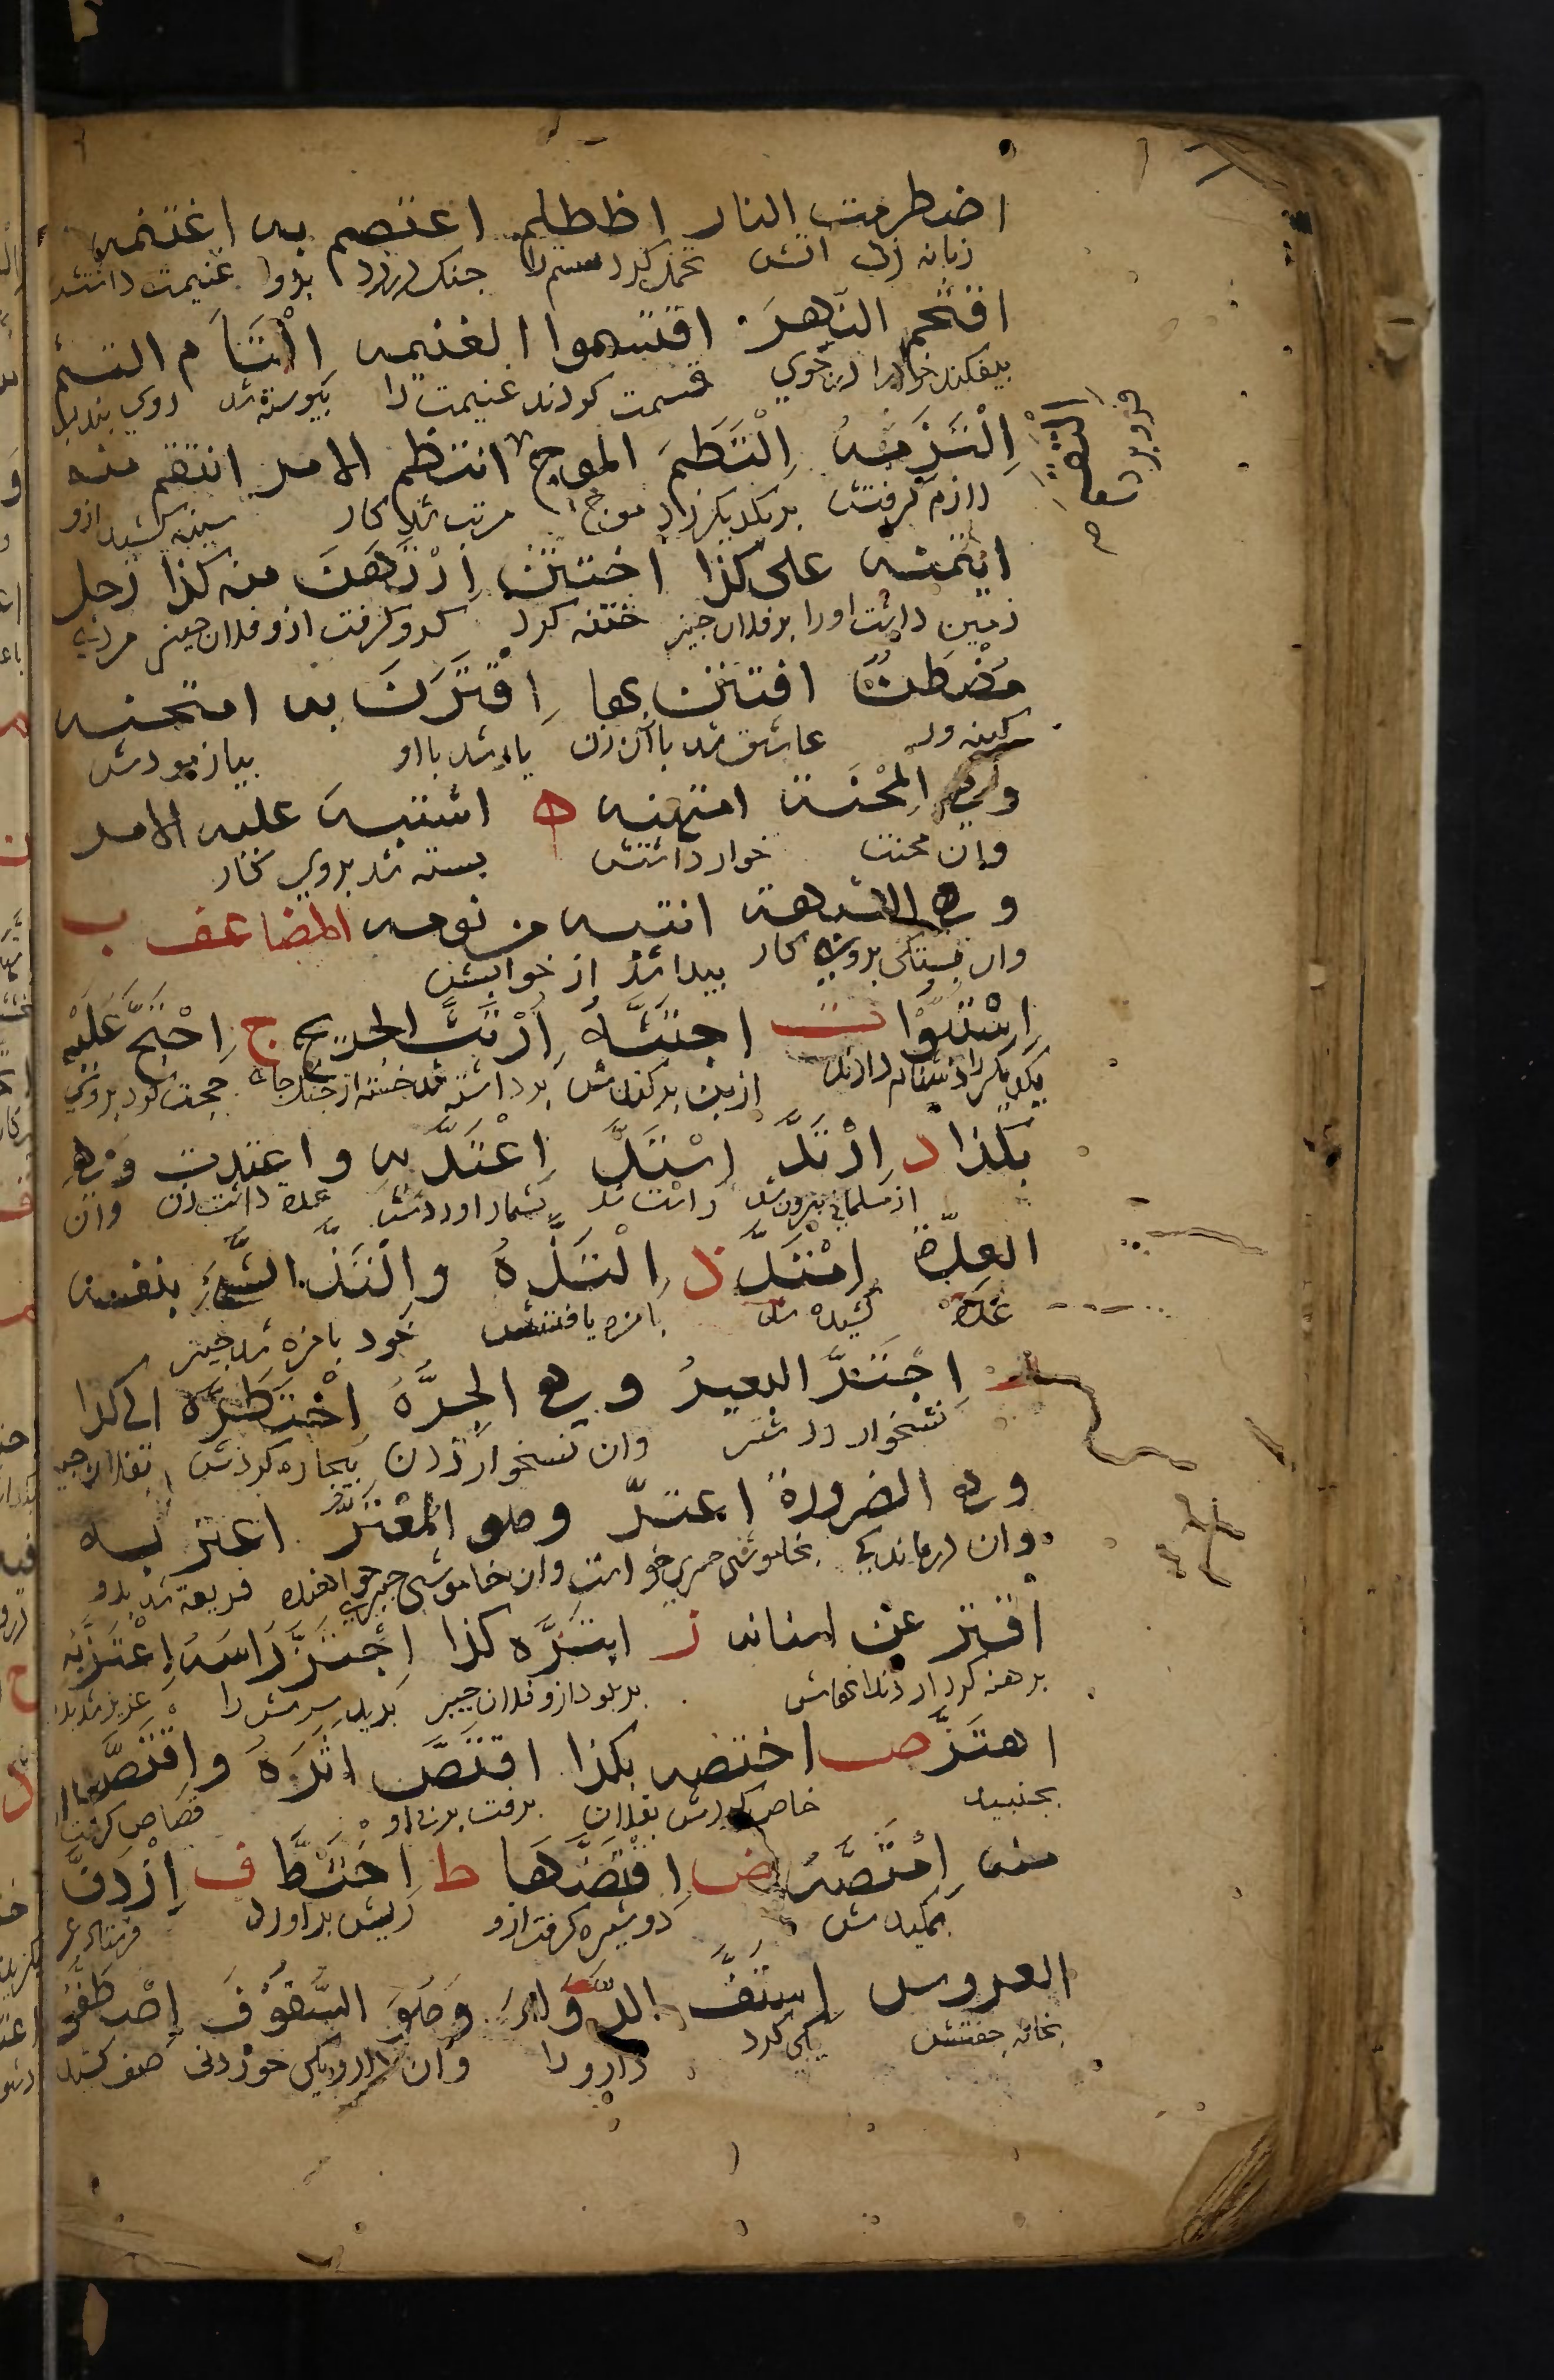 اضطرمت النار اظطلم اعتصم به اغتنمه
زبانه زد اتش تحمل کرد ستم را جنک درزد بدوا غنیمت دانتش
اقتحم النهرَ اقتسموا الغنیمه اِلْتَأَم التثم
بیفکند خود را در جوی قسمت کردند غنیمت را پیوسته شد روی بند بست
اِلْتَزَمَهُ اِلْتَطَمَ الموج انتظم الامر انتقم منه
لازم کرفتش بر یکدیکر زد موج مرتب شد کار کینه کشید ازو
ایتمنه علی کذا اختتن اِرْتَهَنَ منه کذا رجل
زمین داشت اورا بر فلان چیز ختنه کرد کرو کرفت ازو فلان چیز مردی
مُضْطَغن افتتن بها اِقْتَرَنَ به امتحنه
کینه ور عاشق شد باان زن یار شد بااو بیازمودش
وهی المِحْنة امتهنه ه اشتبه علیه الامر
وان محنت خوار داشتش بسته شد بروی کار
وهی الشبهة انتبه من نومه المضاعف ب
وان بستکی بروی کار بیدار شد از خوابش
اِسْتَبُّوا ث اجتثَّهُ اُرْتُثَّ الجریح ج اِحْتَجَّ عَلَیْه
یکدیکر را دشنام دادند از بن برکندش برداشته شد خسته از جنک جای حجت کرد بروی
بکذا د اِرْتَدَّ اِسْتَدَّ اِعْتَدَّ به واعتدت وَهی
از مسلمانی بیرون شد راست شد بشمار اوردش عده داشت زن وان
العِدّة اِمْتَدَّ ذ اِلْتَذَّهُ واِلْتَذَّ الشَّیْءُ بنفسه
عده کشیده شد بامزه یافتش خود بامزه شد چیز
اِجْتَرَّ البعیرُ وهی الجِرَّةُ اِضْطَرَّهُ الی کذا
نشخوار زد شتر وان نشخوار زدن بیچاره کردش بفلان چیز
وهی الضرورة اعتَرَّ وهو المُعْتَرُّ اغتر به
وان درماندکی بخاموشی چیزی خواست وان خاموشی چیزی خواهنده فریفته شد بدو
افترَّ عن اسنانه ز ابتَزَّه کذا اِجْتَزَّ رَاسَه اِعْتَزَّبِه
برهنه کرد از دندانهاش بربود ازو فلان چیز ببرید سرش را عزیز شد بدو
اهتَزَّ ص اختصه بکذا اقتَصَّ اثَرَهُ واِقْتَصَّ
بجنبید خاص کردش بفلان برفت بر پی او قصاص کرفت
منه اِمْتَصَّه ض اِقْتَضَّهَا ط اخْتَطَّ ف اِزْدَفَّ
بمکیدش دوشیزه کرفت ازو ریش براورد فرستاد عروس
العروس اِسْتَفَّ الدَّوَاءَ وَهُوَ السَّفُوْفَ اِصْطَفُّوْ
بخانه جفتش یکی کرد دارو را وان داروی خوردنی صف کشیدند